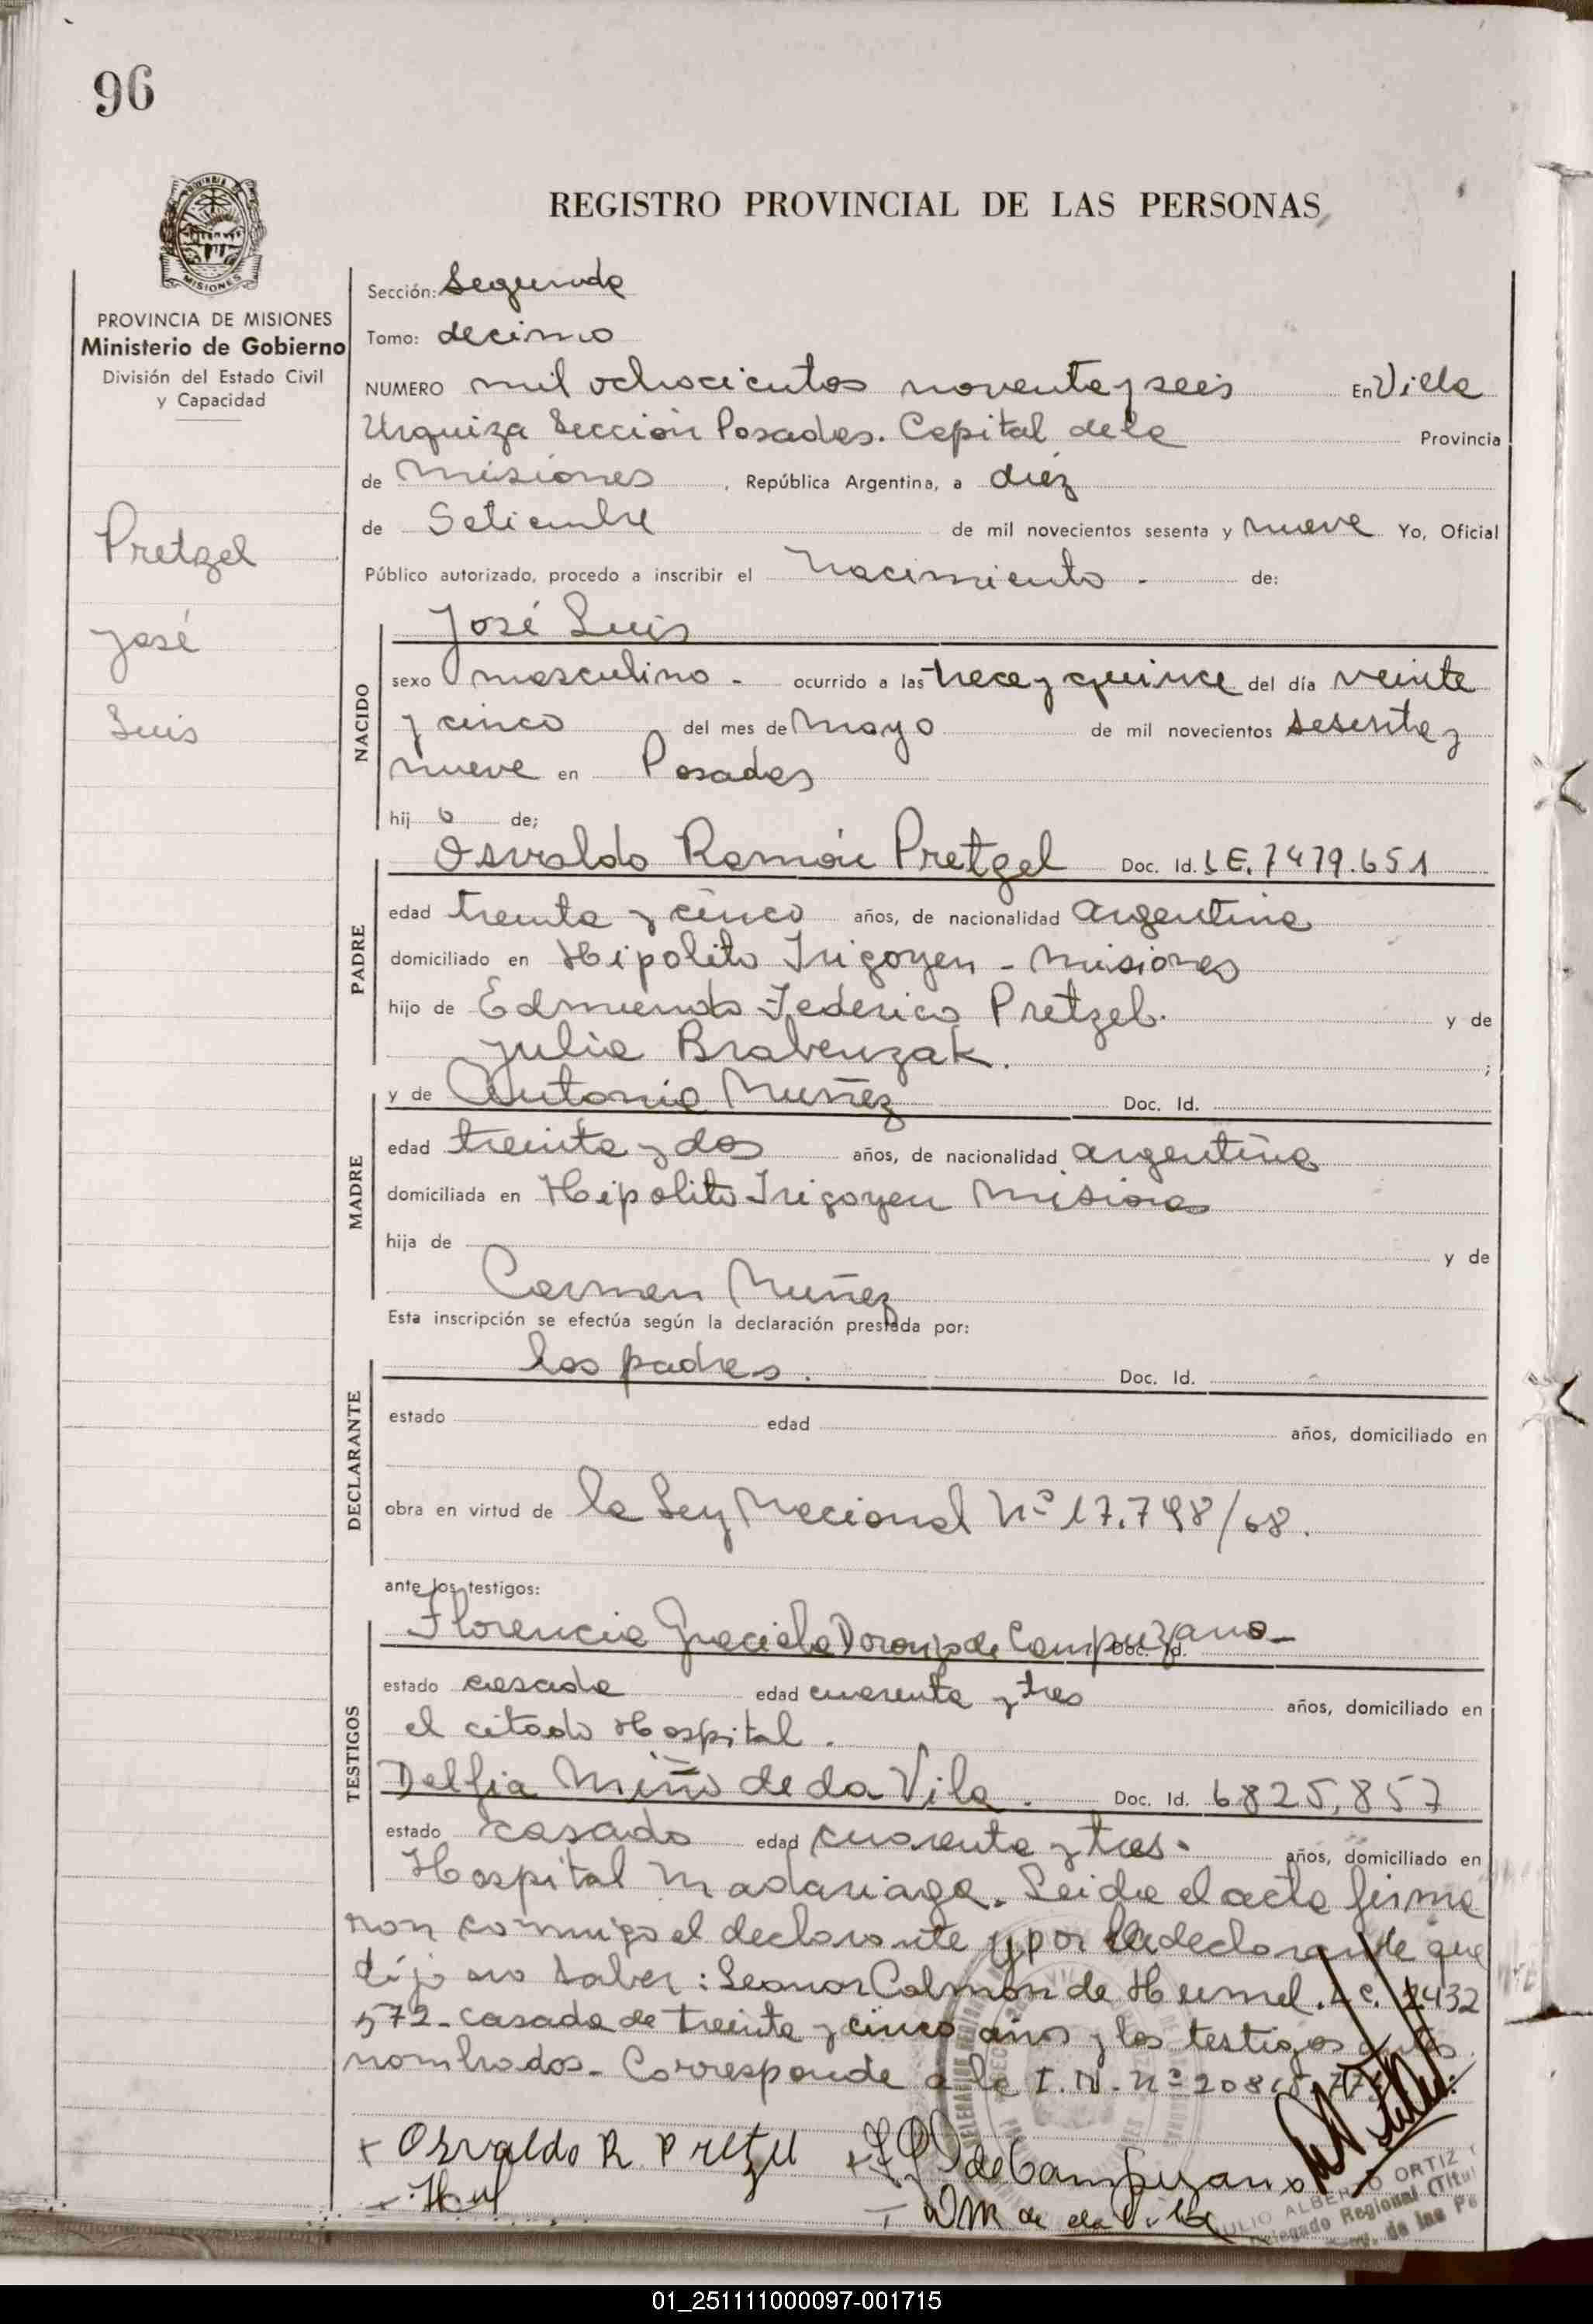 96
REGISTRO PROVINCIAL DE LAS PERSONAS
PROVINCIA DE MISIONES
MISIONES
PROVINCIA DE MISIONES
Ministerio de Gobierno
División del Estado Civil
y Capacidad
Pretzel
José
Luis
Sección: Segunda
Tomo: decimo
NUMERO mil ochocientos noventa y seis En Villa
Urquiza Sección Posadas. Capital de la Provincia
de Misiones, República Argentina, a diéz
de Setiembre de mil novecientos sesenta y nueve Yo, Oficial
Público autorizado, procedo a inscribir el Nacimiento - de:
José Luis
NACIDO
sexo masculino - ocurrido a las trece y quince del día veinte
y cinco del mes de Mayo de mil novecientos sesenta y
nueve en Posadas
hij o de;
PADRE
Osvaldo Ramón Pretzel Doc. Id. LE. 7479.651
edad treinta y cinco años, de nacionalidad argentina
domiciliado en Hipolito Irigoyen - Misiones
hijo de Edmundo Federico Pretzel. y de
Julia Brabenzak. ;
MADRE
y de Antonia Muñez Doc. Id.
edad treinta y dos años, de nacionalidad argentina
domiciliada en Hipolito Irigoyen Misiones
hija de y de
Carmen Muñez
Esta inscripción se efectúa según la declaración prestada por:
DECLARANTE
los padres. Doc. Id.
estado edad años, domiciliado en
obra en virtud de la Ley Nacional Nº 17.798/68.
ante los testigos:
TESTIGOS
Florencia Graciela de Campuzano - Doc. Id.
estado casada edad cuarenta y tres años, domiciliado en
el citado Hospital.
Delfia Miño de da Vila. Doc. Id. 6825,857
estado casado edad cuarenta y tres. años, domiciliado en
Hospital Madariaga. Leida el acta firma
ron conmigo el declarante y por la declarante que
dijo no saber: Leonor Colmán de Humel. L.C. 2432
572 - casada de treinta y cinco años y los testigos antes
nombrados - Corresponde a la I.N. nº
Osvaldo R. Pretzel
de Campuzano
DM de da Vila
JULIO ALBERTO ORTIZ
Delegado Regional (Titul
de las Pe
01_251111000097-001715